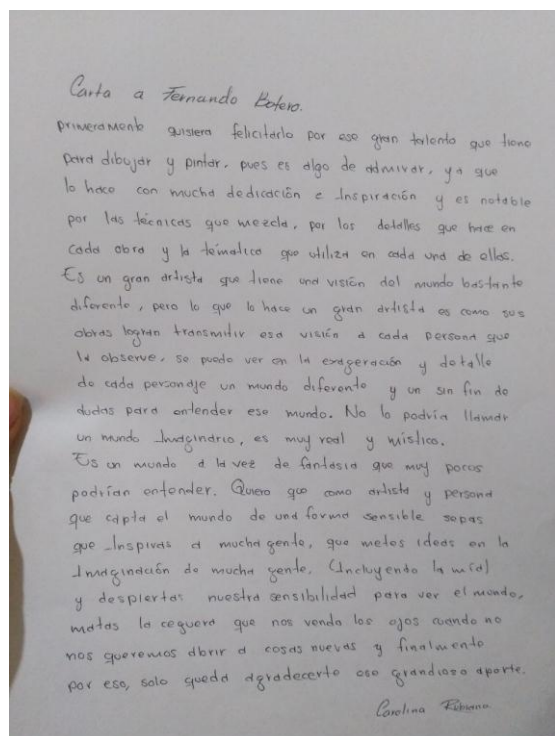 Carta a Fernando Botero.
primeramente quisiera felicitarlo por ese gran talento que tiene
para dibujar y pintar, pues es algo de admirar, ya que
lo hace con mucha dedicación e Inspiración y es notable
por las técnicas que mezcla, por los detalles que hace en
cada obra y la temática que utiliza en cada una de ellas.
Es un gran artista que tiene una visión del mundo bastante
diferente, pero lo que lo hace un gran artista es como sus
obras logran transmitir esa visión a cada persona que
la observe, se puede ver en la exageración y detalle
de cada personaje un mundo diferente y un sin fin de
dudas para entender ese mundo. No lo podría llamar
un mundo Imaginario, es muy real y mistico.
Es un mundo a la vez de fantasia que muy pocos
podrían entender. Quiero que como artista y persona
que capta el mundo de una forma sensible sepas
que Inspiras a mucha gente, que metes ideas en la
Imaginación de mucha gente. (Incluyendo la mía)
y despiertas nuestra sensibilidad para ver el mundo,
matas la ceguera que nos venda los ojos cuando no
nos queremos abrir a cosas nuevas y finalmente
por eso, solo queda agradecerte ese grandioso aporte.
Carolina